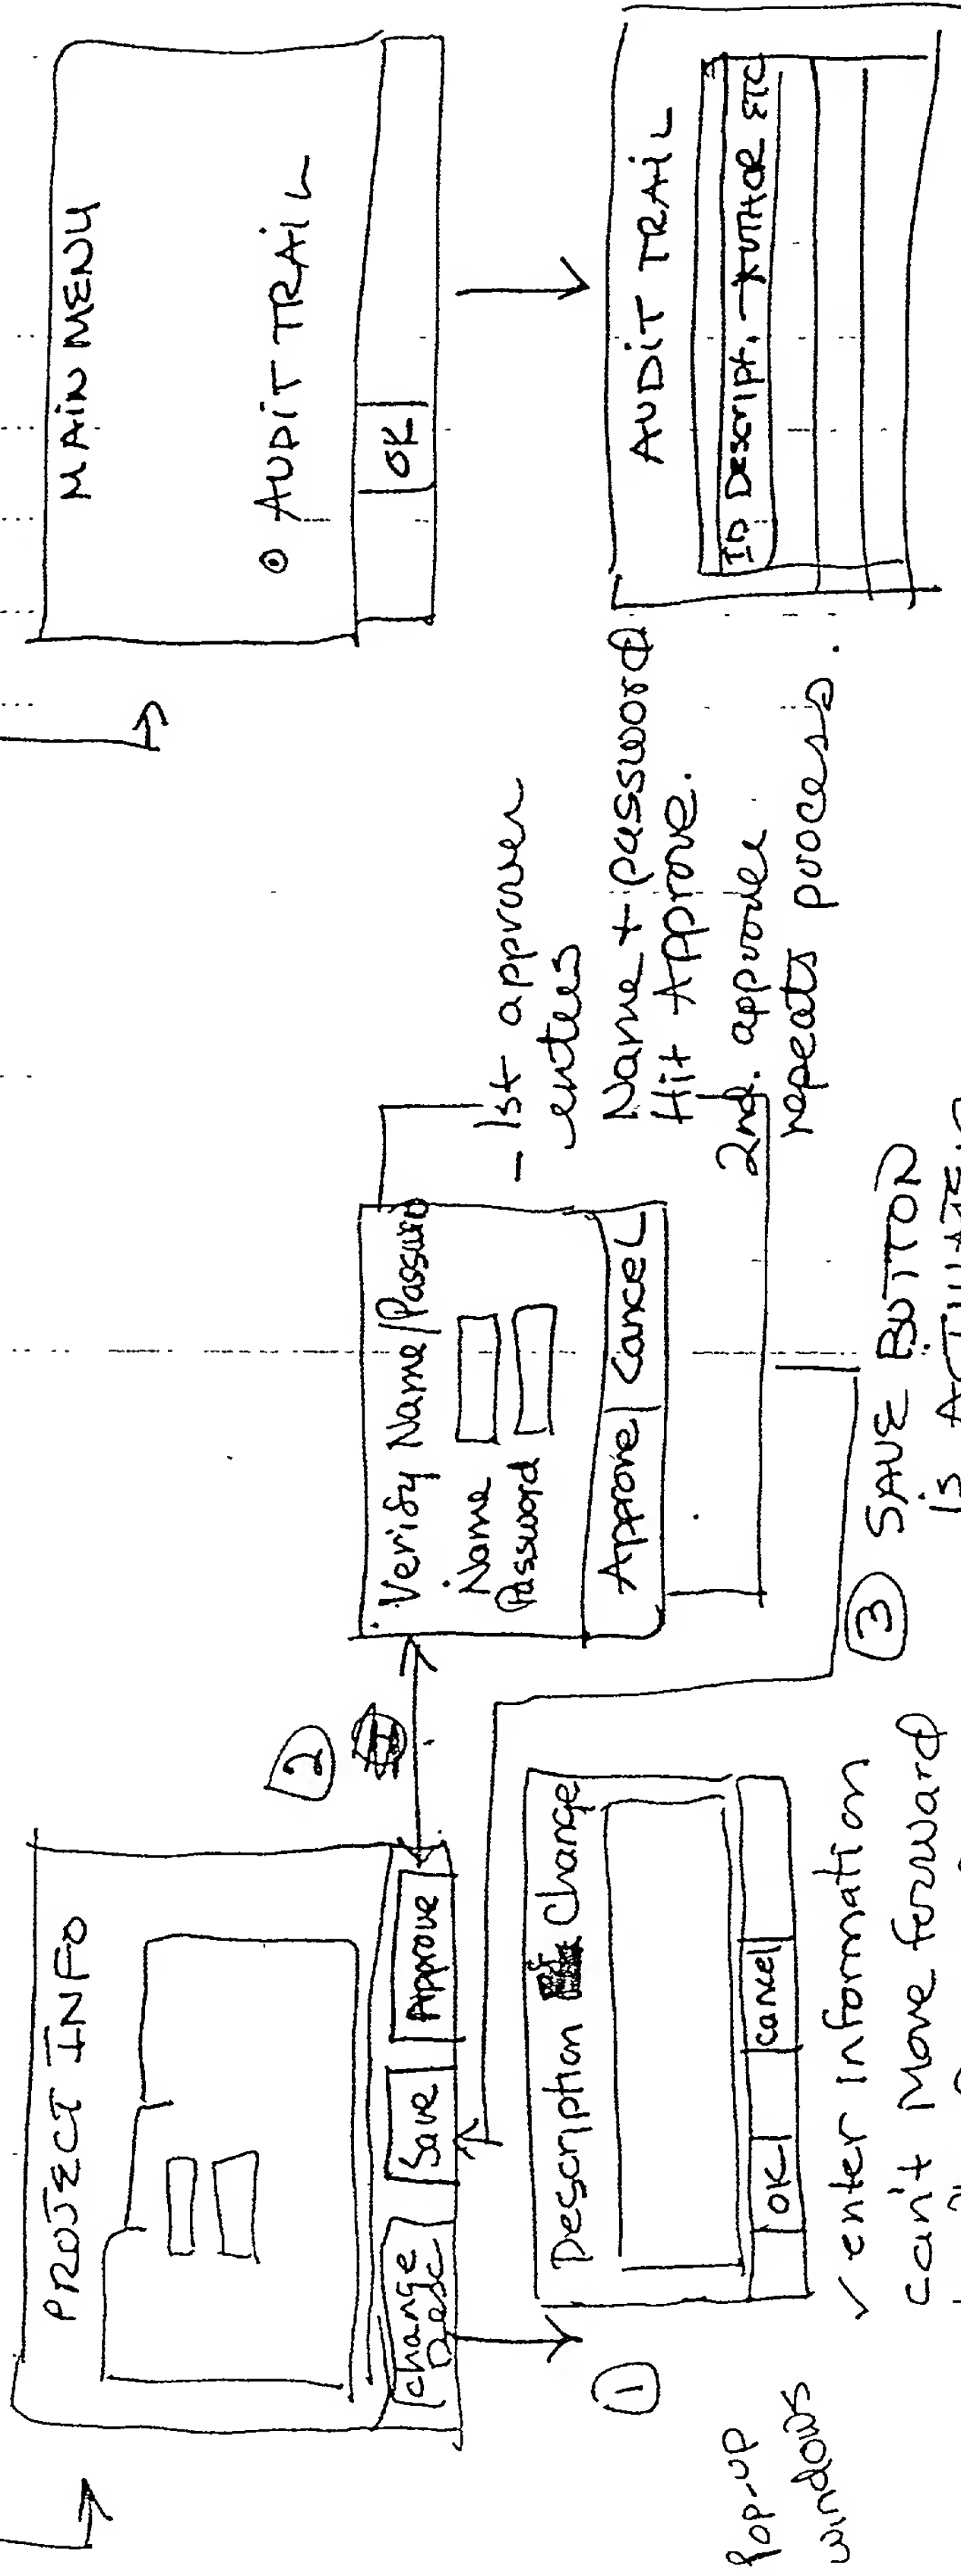 PROJECT INFO
Change
Desc
Save
Approve
1
Pop-up
windows
Description Change
OK
Cancel
✓ enter information
can't Move forward
2
Verify Name/Password
Name
Password
Approve
Cancel
- 1st approver
enters
Name + password
Hit Approve.
2nd. approver
repeats process.
3
SAVE BUTTON
is
MAIN MENU
⊙ AUDIT TRAIL
OK
AUDIT TRAIL
ID Descript. AUTHOR ETC